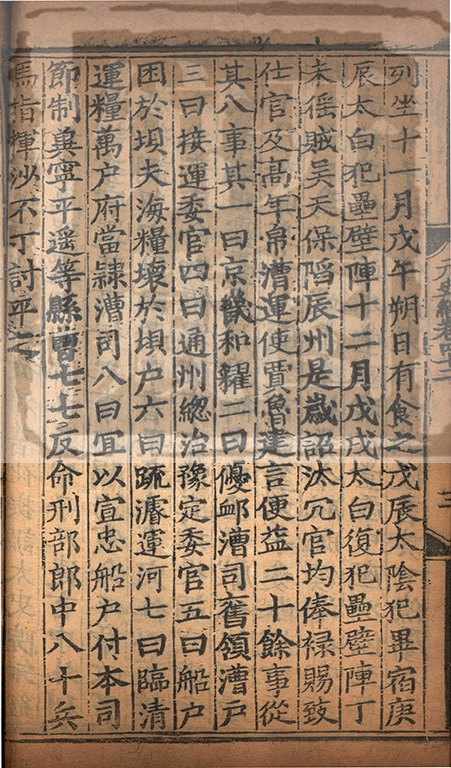 列坐十一月戊午朔日有食之戊辰太陰犯畢宿庚
辰太白犯壘壁陣十二月戊戌太白復犯壘壁陣丁
未徭賊吳天保陷辰州是歲詔汰冗官均俸禄賜致
仕官及髙年帛漕運使賈魯建言便益二十餘事從
其八事其一曰京畿和糴二曰優卹漕司舊領漕戶
三曰接運委官四曰通州緫治豫定委官五曰船戶
困於壩夫海糧壞於壩户六曰疏濬運河七曰臨清
運糧萬户府當隷漕司八曰宜以宣忠船户付本司
節制冀寧平遥等縣曹七七反命刑部郎中八十兵
馬指揮沙不丁討平之
三